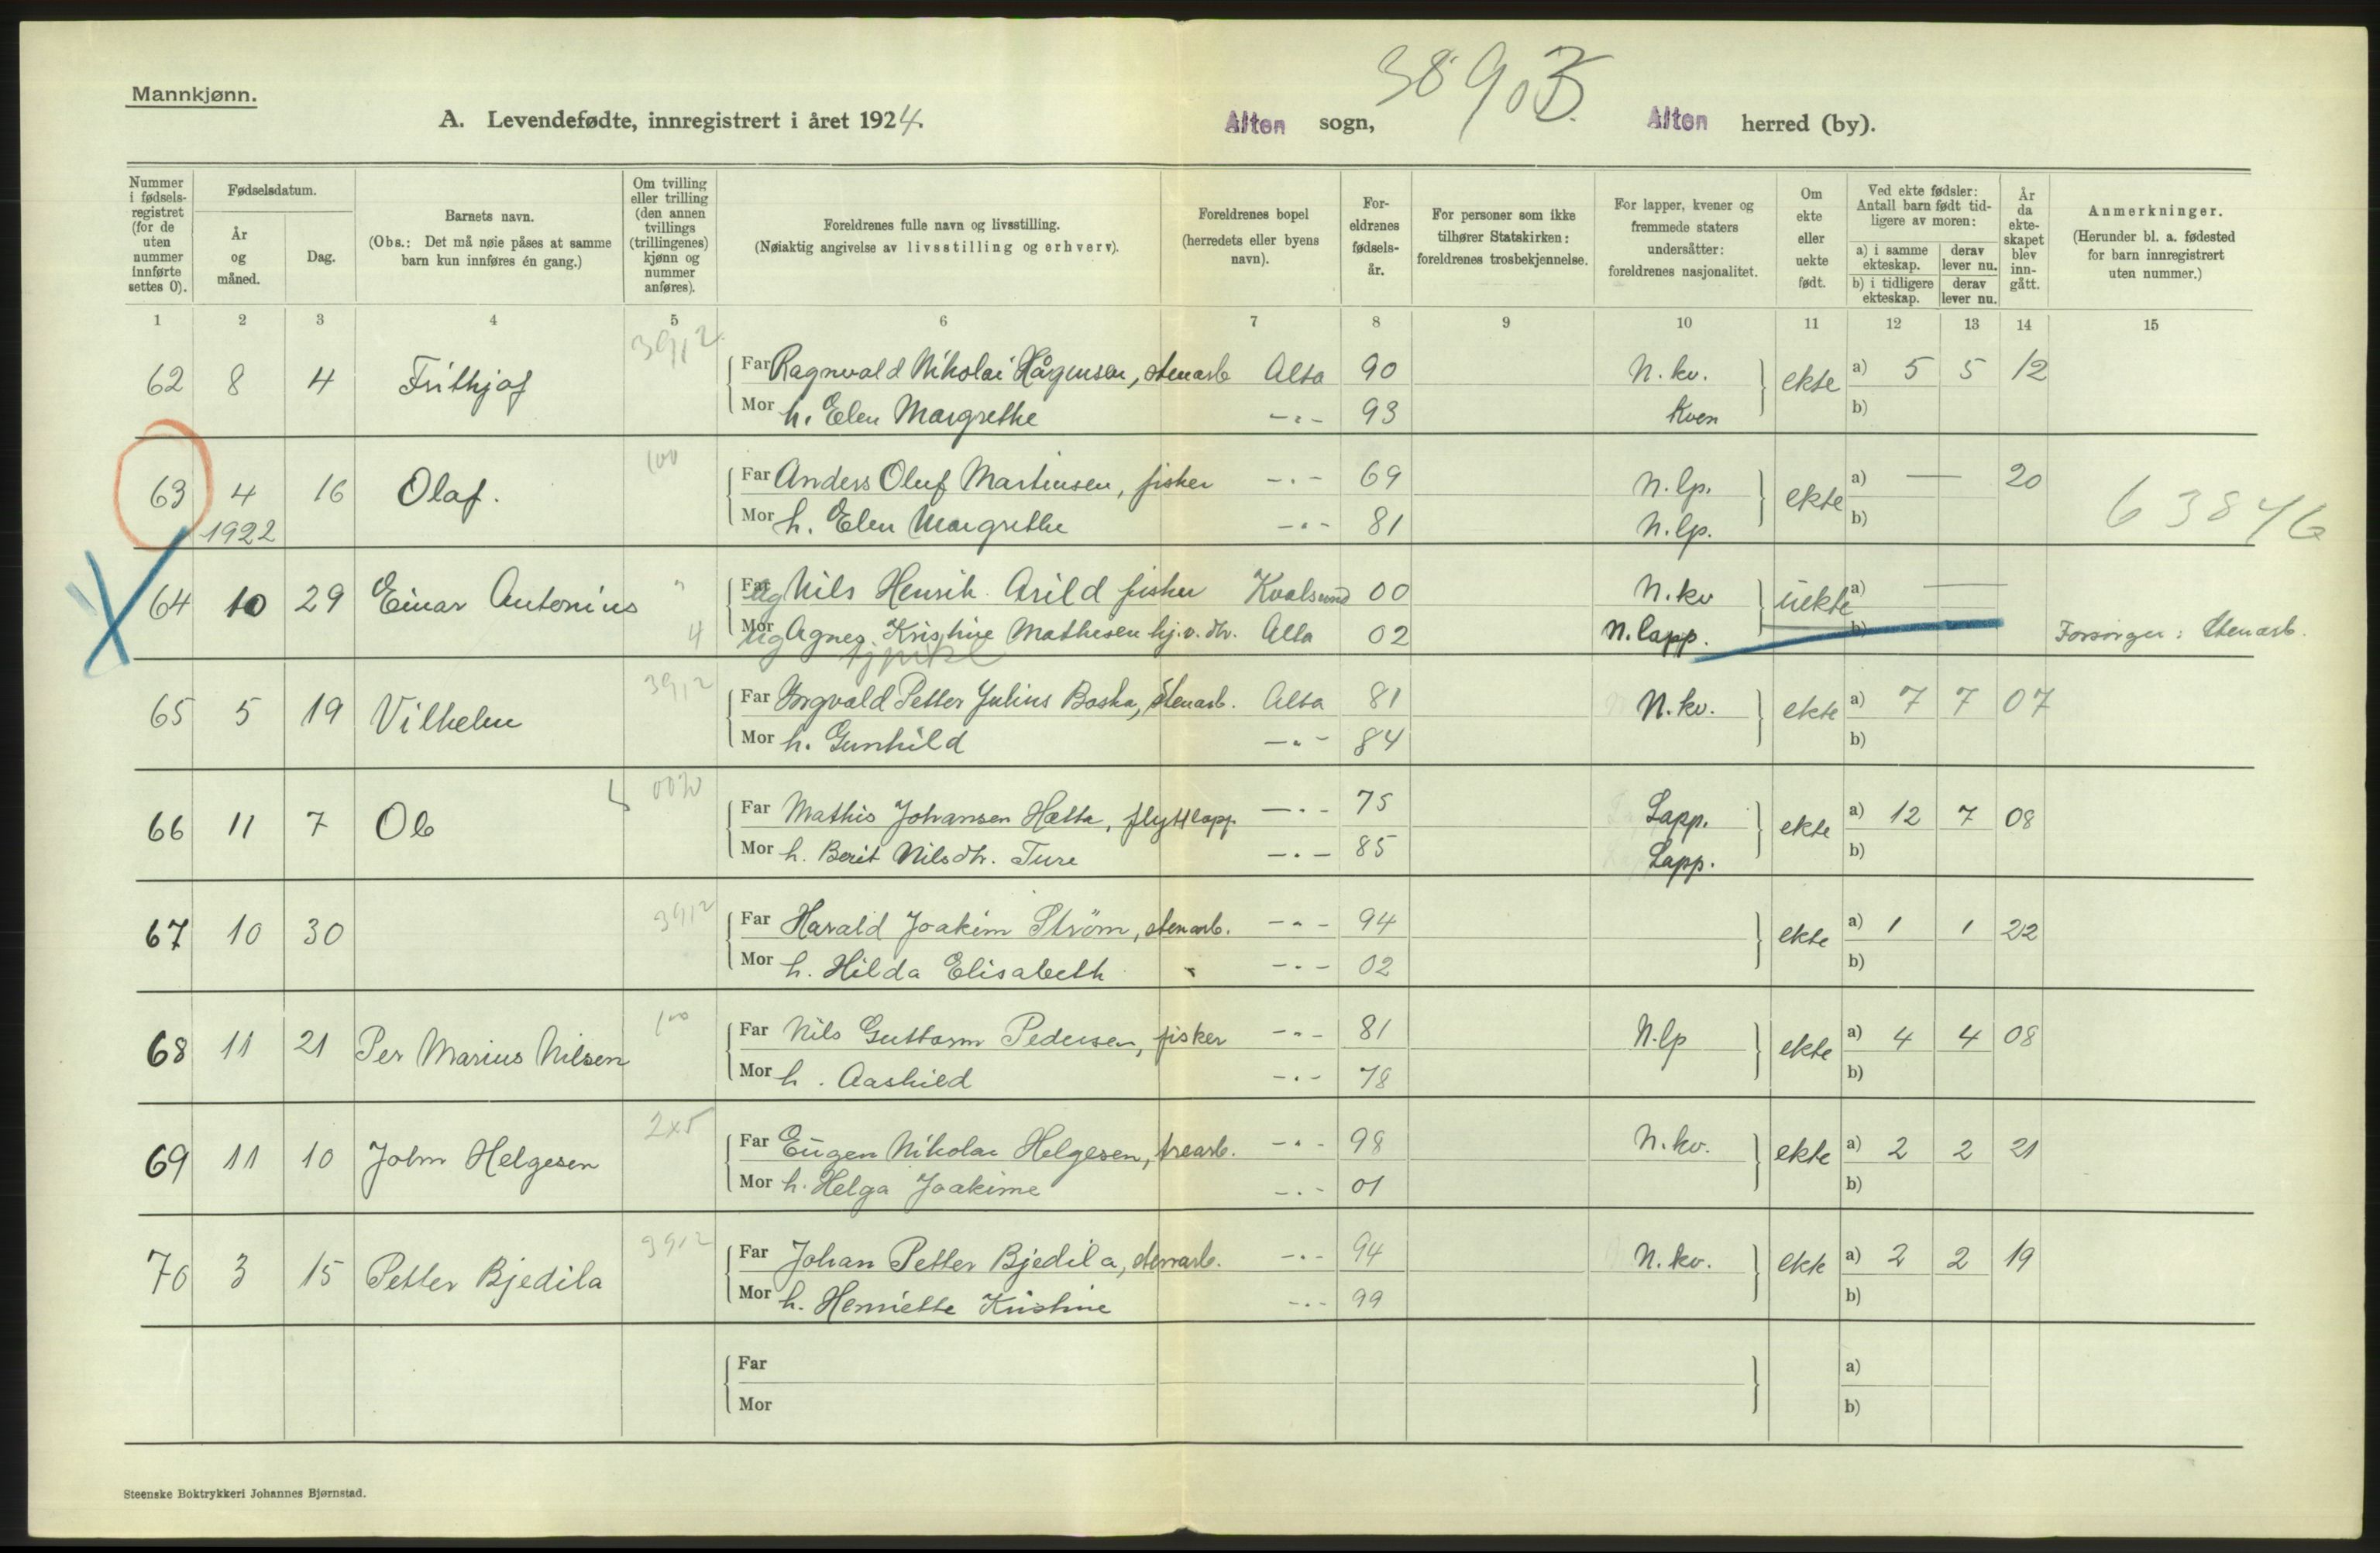 38903.
Mannkjønn.
A. Levendefødte, innregistrert i året 1924. Alten sogn, Alten herred (by).
Nummer i fødselsregistret (for de uten nummer innførte settes 0).
Fødselsdatum.
År og måned.
Dag.
Barnets navn.
(Obs.: Det må nøie påses at samme barn kun innføres én gang.)
Om tvilling eller trilling (den annen tvillings (trillingenes) kjønn og nummer anføres).
Foreldrenes fulle navn og livsstilling.
(Nøiaktig angivelse av livsstilling og erhverv).
Foreldrenes bopel (herredets eller byens navn).
Foreldrenes fødselsår.
For personer som ikke tilhører Statskirken: foreldrenes trosbekjennelse.
For lapper, kvener og fremmede staters undersåtter: foreldrenes nasjonalitet.
Om ekte eller uekte født.
Ved ekte fødsler: Antall barn født tidligere av moren:
a) i samme ekteskap. derav lever nu.
b) i tidligere ekteskap. derav lever nu.
År da ekteskapet blev inngått.
Anmerkninger.
(Herunder bl. a. fødested for barn innregistrert uten nummer.)
1 2 3 4 5 6 7 8 9 10 11 12 13 14 15
3912
62 8 4 Frithjof Far Ragnvald Nikolai Hågensen, stenarb Alta 90 N. kv. ekte a) 5 5 12
Mor h. Elen Margrethe -"- 93 Kven b)
100
63 4 16 Olaf. Far Anders Oluf Martinsen, fisker -"- 69 N. lp. ekte a) — 20
1922 Mor h. Elen Margrethe -"- 81 N. lp. b) 63846
64 10 29 Einar Antonius Far Ug Nils Henrik Arild fisker Kvalsund 00 N. kv uekte a) —
4 Mor Ug Agnes Kristine Mathisen hj. v. dtr. Alta 02 N. lapp. b) Forsørger: Stenarb.
tjpike
3912
65 5 19 Vilhelm Far Ingvald Petter Julius Boska, stenarb. Alta 81 N. kv. ekte a) 7 7 07
Mor h. Gunhild -"- 84 b)
66 11 7 Ole Far Mathis Johansen Hætta, flyttlapp. -"- 75 Lapp. ekte a) 12 7 08
Mor h. Berit Nilsdtr. Ture -"- 85 Lapp. b)
3912
67 10 30 Far Harald Joakim Strøm, stenarb. -"- 94 ekte a) 1 1 22
Mor h. Hilda Elisabeth -"- 02 b)
100
68 11 21 Per Marius Nilsen Far Nils Guttorm Pedersen, fisker -"- 81 N. lp ekte a) 4 4 08
Mor h. Aashild -"- 78 b)
2x5
69 11 10 John Helgesen Far Eugen Nikolai Helgesen, trearb. -"- 98 N. kv. ekte a) 2 2 21
Mor h. Helga Joakime -"- 01 b)
3912
70 3 15 Petter Bjedila Far Johan Petter Bjedila, stenarb. -"- 94 N. kv. ekte a) 2 2 19
Mor h. Henriette Kristine -"- 99 b)
Far a)
Mor b)
Steenske Boktrykkeri Johannes Bjørnstad.